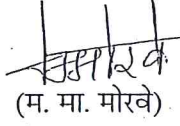 (म. मा. मोरवे)